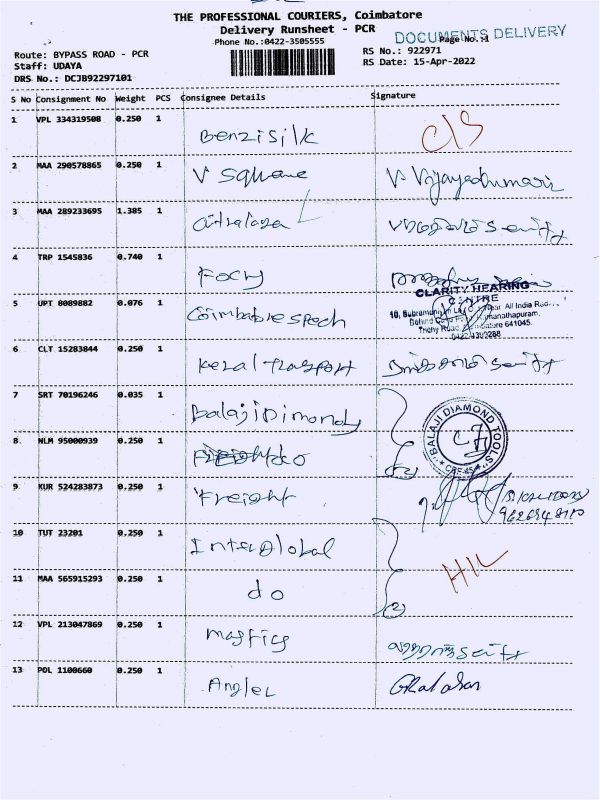 THE PROFESSIONAL COURIERS, Coimbatore
Delivery Runsheet - PCR
DOCUMENTS DELIVERY
Page No.:1
Phone No.:0422-3505555
Route: BYPASS ROAD - PCR
RS No.: 922971
Staff: UDAYA
RS Date: 15-Apr-2022
DRS No.: DCJB92297101
S No Consignment No Weight PCS Consignee Details Signature
1 VPL 334319508 0.250 1 Benzisilk
2 MAA 290578865 0.250 1 V Square V. Vijayakumari
3 MAA 289233695 1.385 1
4 TRP 1545836 0.740 1
CLARITY HEARING
CENTRE
5 UPT 8089882 0.076 1 Coimbatore speech
Trichy Road, Coimbatore 641045.
6 CLT 15283844 0.250 1 Keral Transport
7 SRT 70196246 0.035 1 Balaji Dimond
BALAJI DIAMOND TOOLS
8 NLM 95000939 0.250 1 do (2)
CBE-45
9 KUR 524283873 0.250 1 Freight
10 TUT 23201 0.250 1 Inter Global
11 MAA 565915293 0.250 1 do (2)
12 VPL 213047869 0.250 1
13 POL 1100660 0.250 1